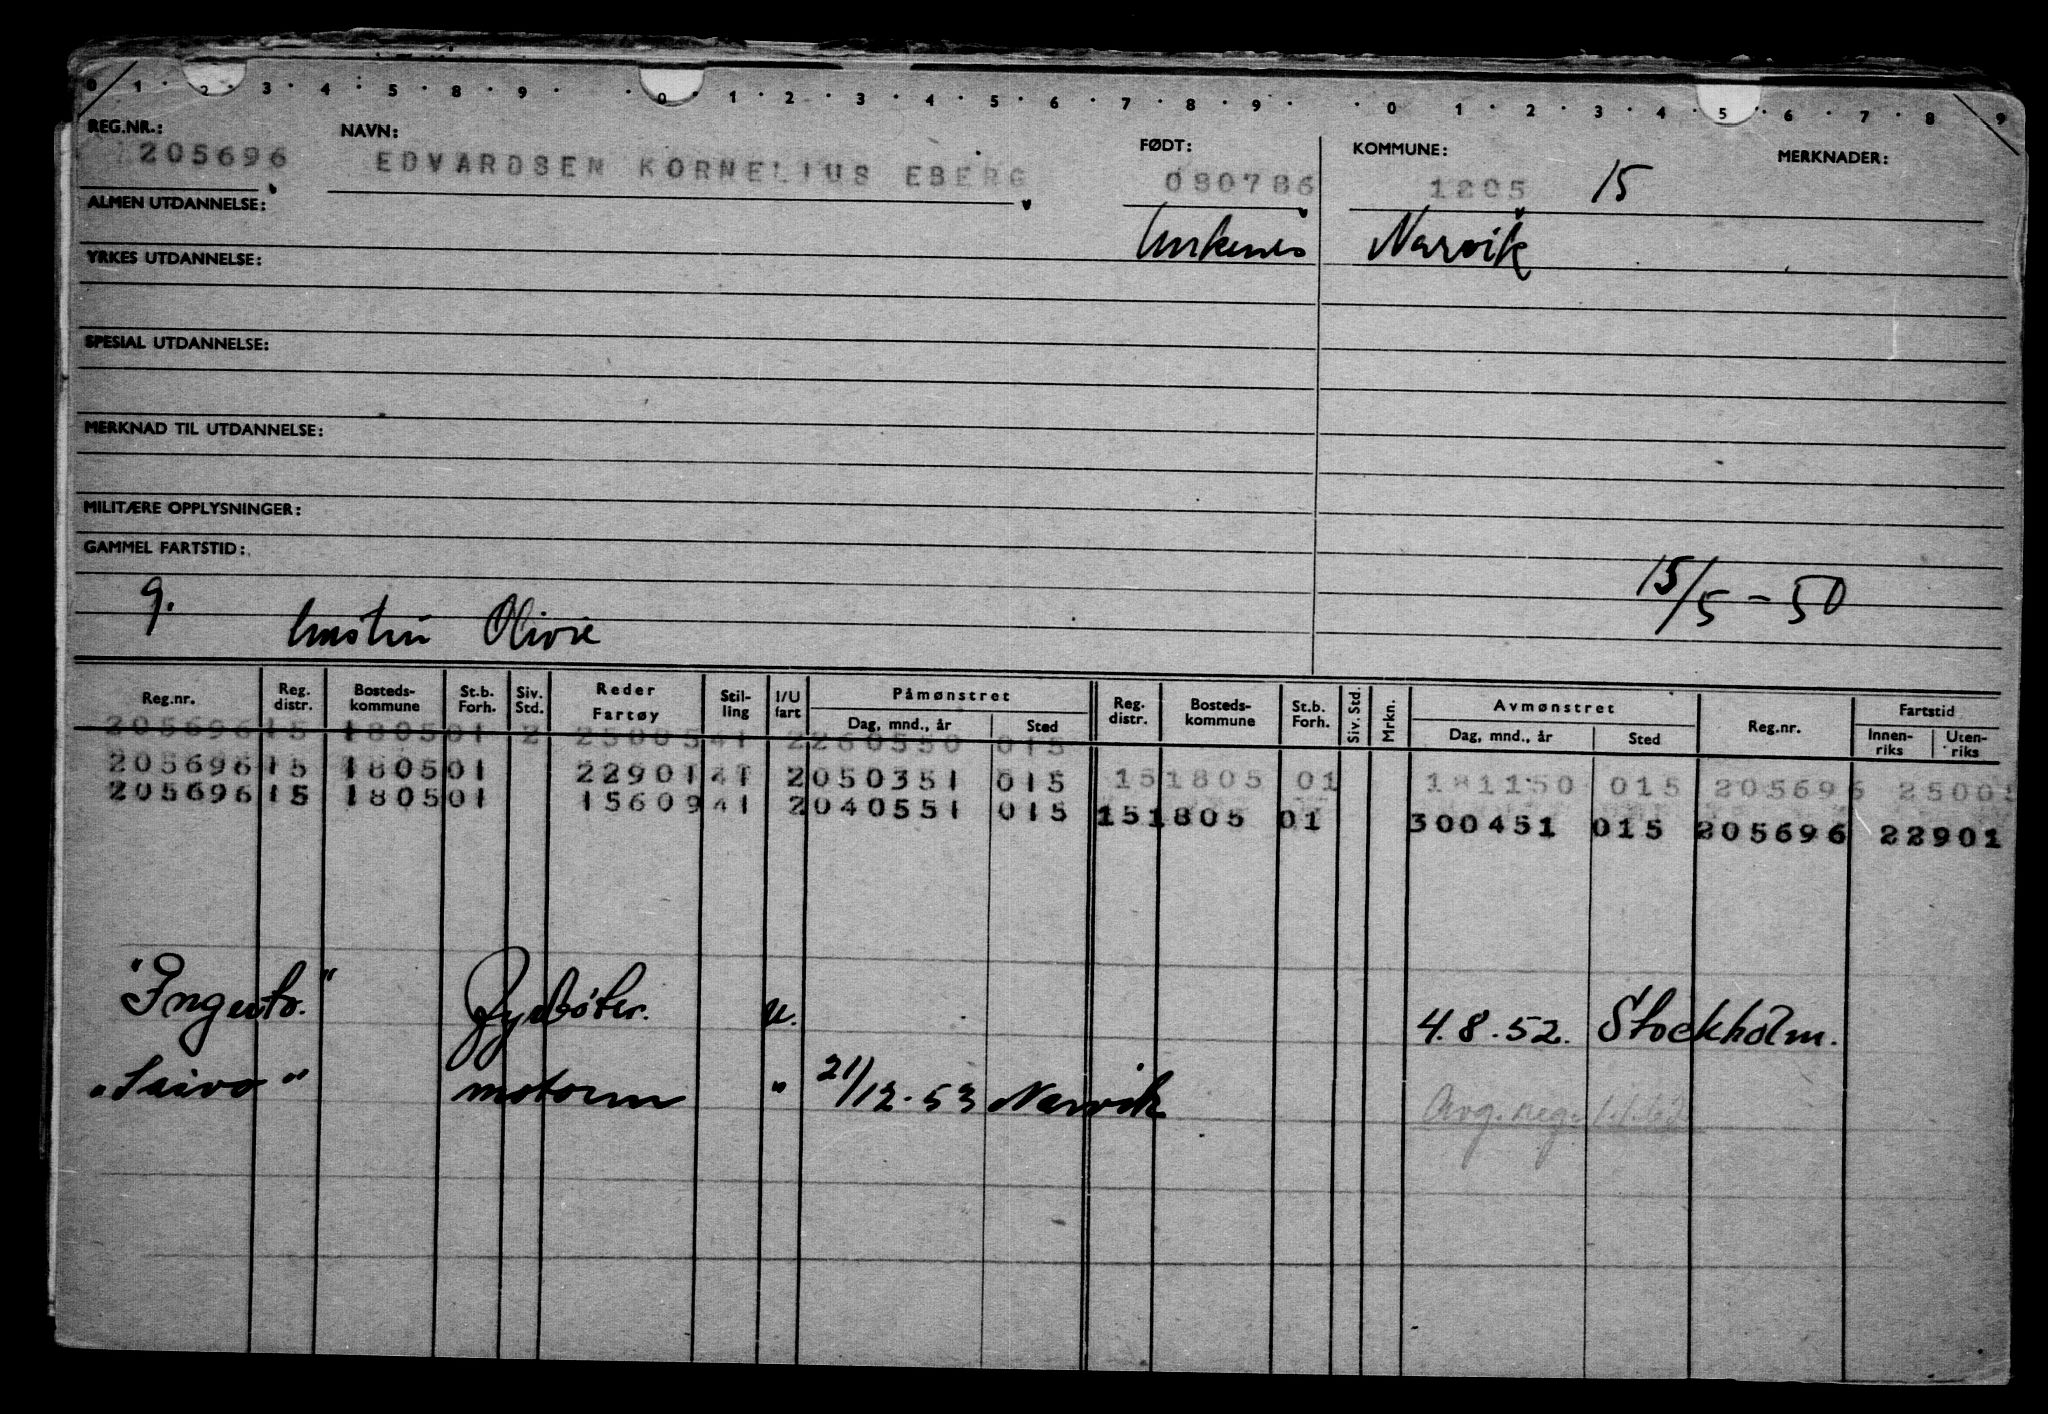 0 1 2 3 4 5 8 9 0 1 2 3 4 5 6 7 8 9 0 1 2 3 4 5 6 7 8 9
REG.NR.: NAVN: FØDT: KOMMUNE: MERKNADER:
205696 EDVARDSEN KORNELIUS EBERG 090786 1805 15
ALMEN UTDANNELSE: Narvik
YRKES UTDANNELSE:
SPESIAL UTDANNELSE:
MERKNAD TIL UTDANNELSE:
MILITÆRE OPPLYSNINGER:
GAMMEL FARTSTID:
g. Olivie 15/5-50
Reg.nr. Reg. distr. Bosteds-kommune St.b. Forh. Siv. Std. Reder Fartøy Stil-ling I/U fart Påmønstret Dag, mnd., år Sted Reg. distr. Bosteds-kommune St.b. Forh. Siv. Std. Mrkn. Avmønstret Dag, mnd., år Sted Reg.nr. Fartstid Innen-riks Uten-riks
205696 15 1805 01 2 25005 41 2 260550 015
205696 15 1805 01 22901 41 2 050351 015 15 1805 01 181150 015 205696 25005
205696 15 1805 01 15609 41 2 040551 015 15 1805 01 300451 015 205696 22901
"Ingerto." Fyrbøter. u. 4.8.52. Stockholm.
"Saivo" motorm " 21/12-53 Narvik